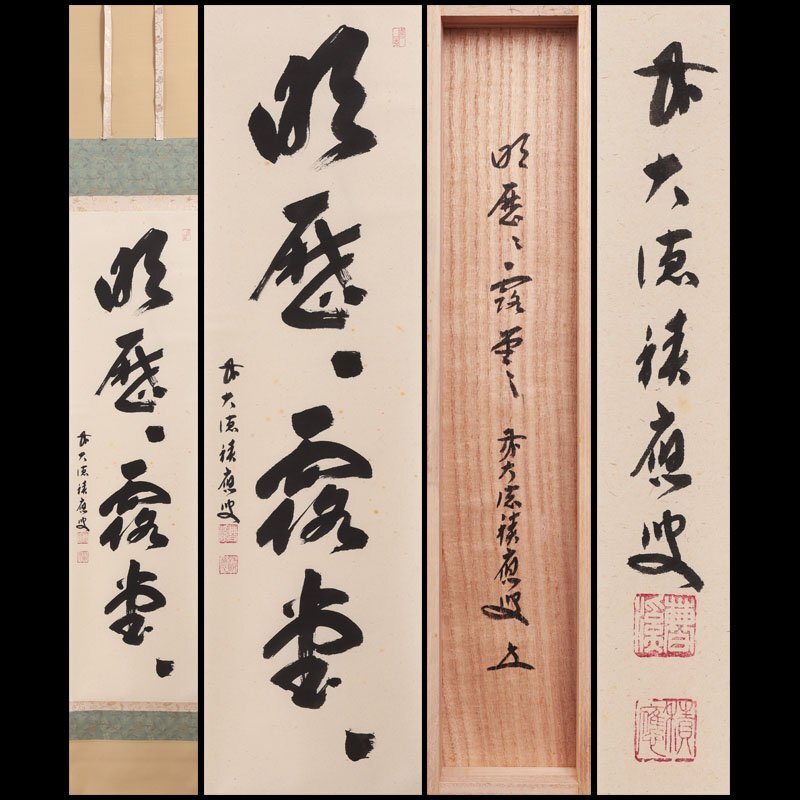 明歴々露堂々
前大徳積應叟
明歴々露堂々
前大徳積應叟
明歴々露堂々 前大徳積應叟
前大徳積應叟
積應